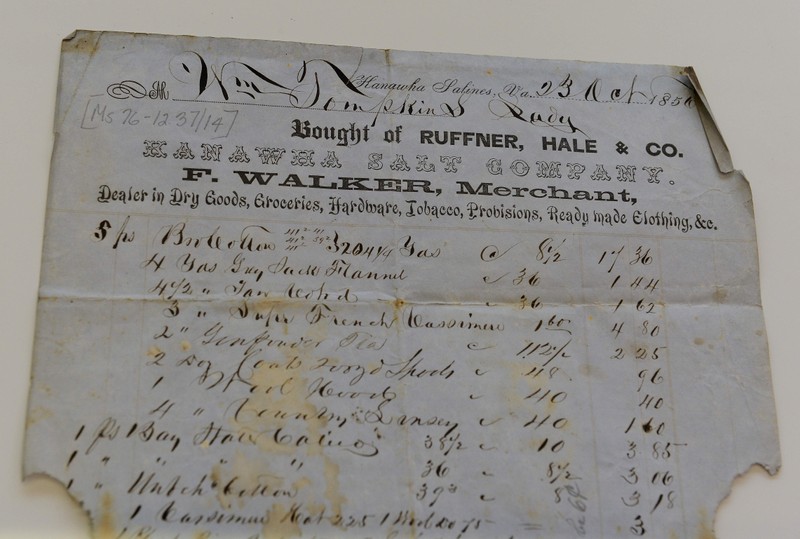 Kanawha Salines, Va. 23 Oct 185
M Wm Tompkins Lady
[Ms 76-12 37/14]
Bought of RUFFNER, HALE & CO.
KANAWHA SALT COMPANY.
F. WALKER, Merchant,
Dealer in Dry Goods, Groceries, Hardware, Tobacco, Provisions, Ready made Clothing, &c.
5 ps Bro Cotton 204 1/4 Yds @ 8 1/2 17 36
4 Yds Flannel " 36 1 44
4 1/2 " " 36 1 62
3 " Super French Cassimere 1 60 4 80
2 " Gunpowder Tea " 112 1/2 2 25
2 Doz Coats Thread " 48 96
1 Wool Hood " 40 40
4 " Country Linsey " 40 1 60
1 ps Calico 38 1/2 " 10 3 85
1 " " " " 36 " 8 1/2 3 06
1 " Cotton 39 3 " 8 3 18
1 Cassimere Hat 225 1 75 3